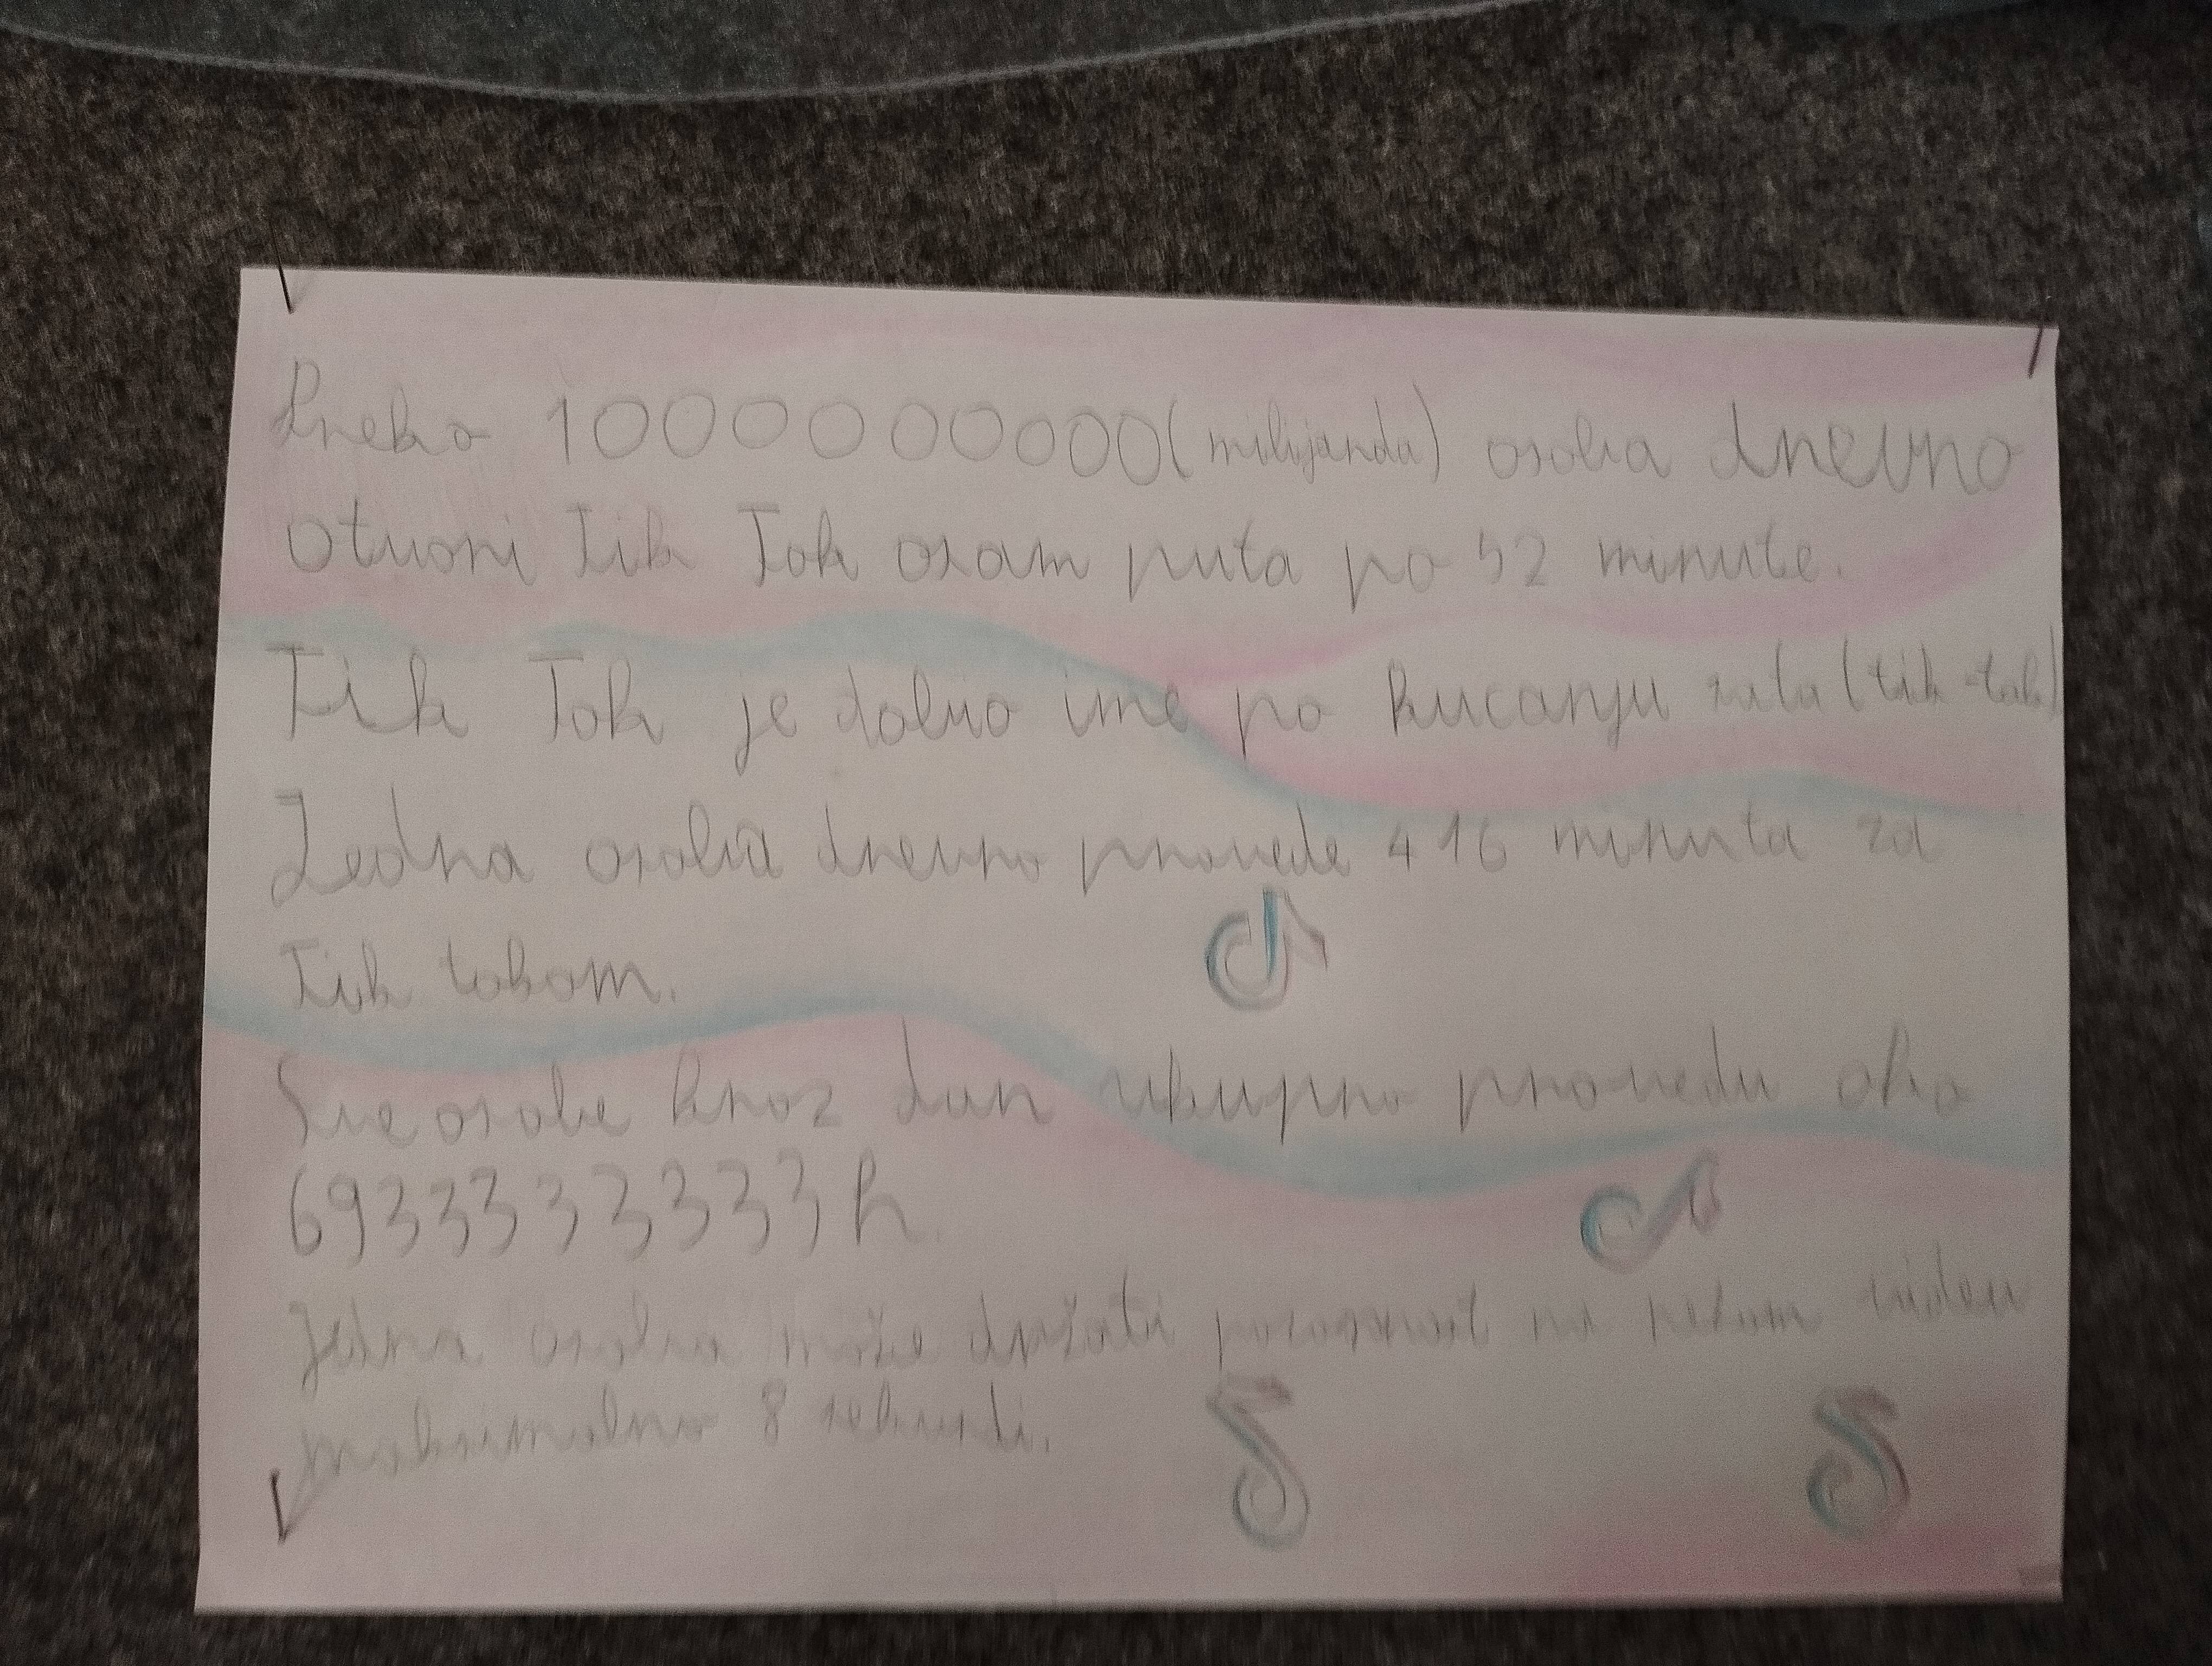 Preko 1000000000 (milijarda) osoba dnevno
otvori Tik Tok osam puta po 52 minute.
Tik Tok je dobio ime po kucanju sata (tik-tak)
Jedna osoba dnevno provede 416 minuta za
Tik tokom.
Sve osobe kroz dan ukupno provedu oko
6933333333 h.
Jedna osoba može držati pozornost na videu
maksimalno 8 sekundi.